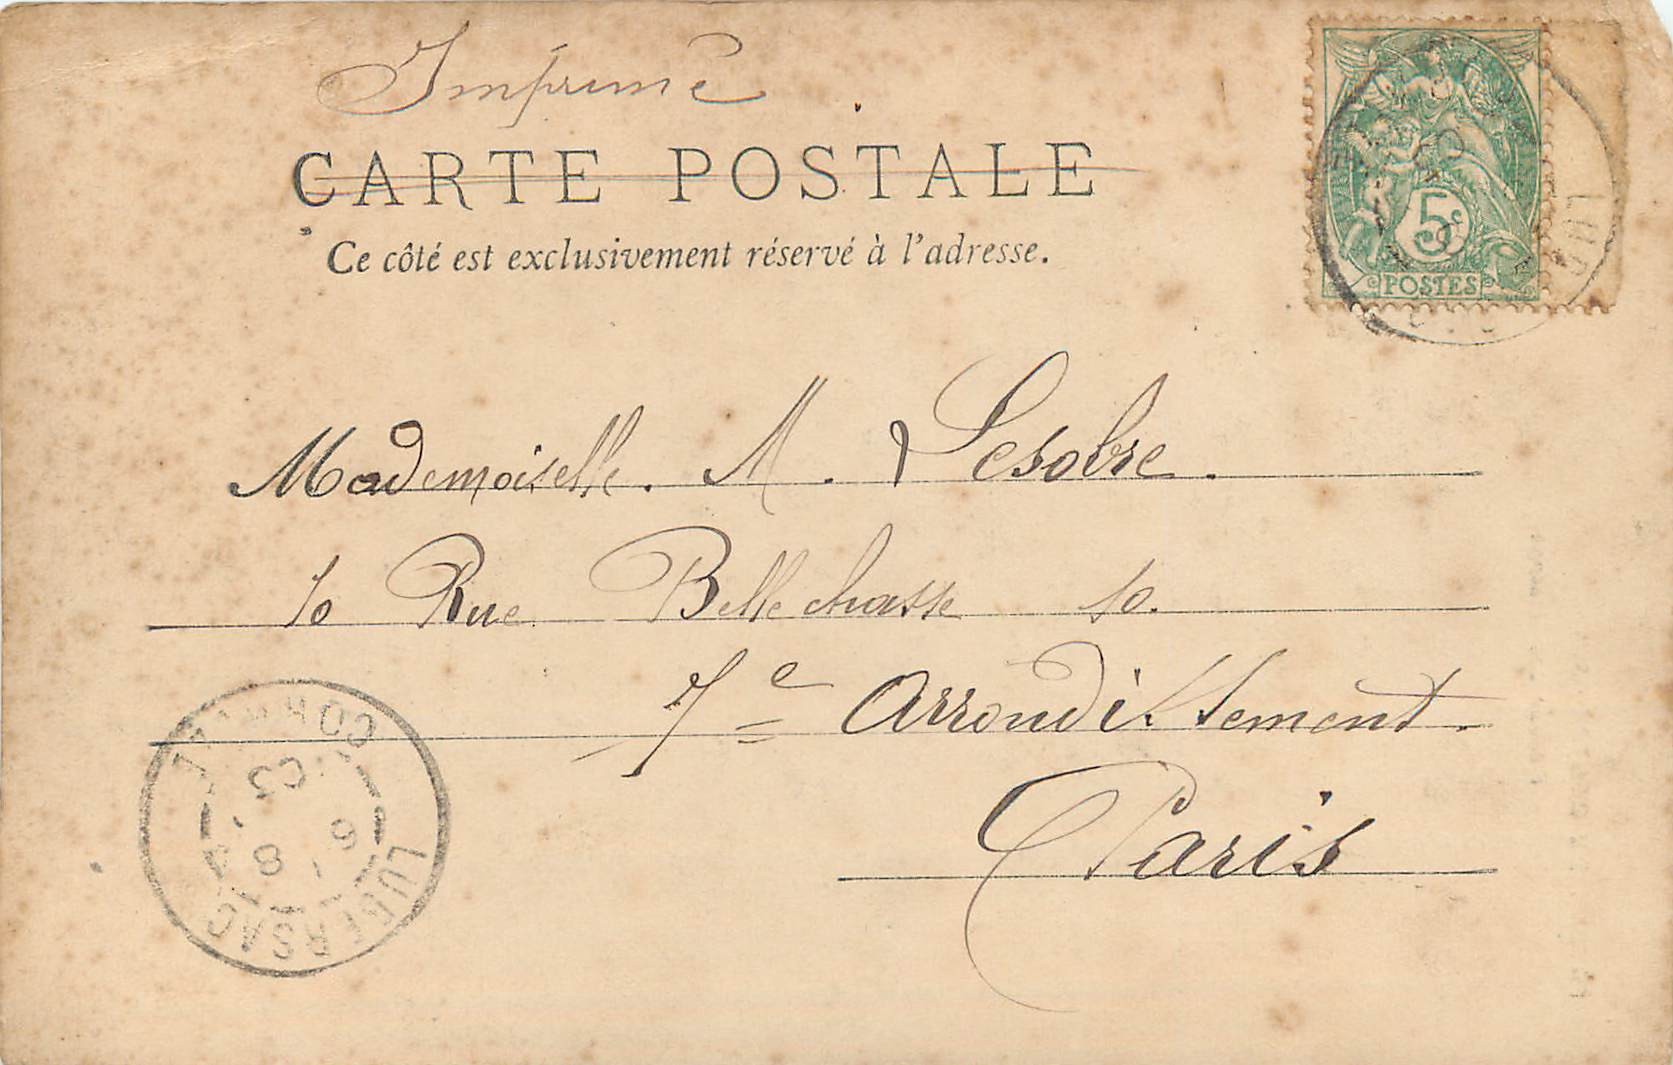 Imprimé
CARTE POSTALE
Ce côté est exclusivement réservé à l'adresse.
5c
POSTES
Mademoiselle. M. Lesobre.
10 Rue Bellechasse 10.
7e Arrondissement.
Paris
LUBERSAC
CORRÈZE
6
8
03